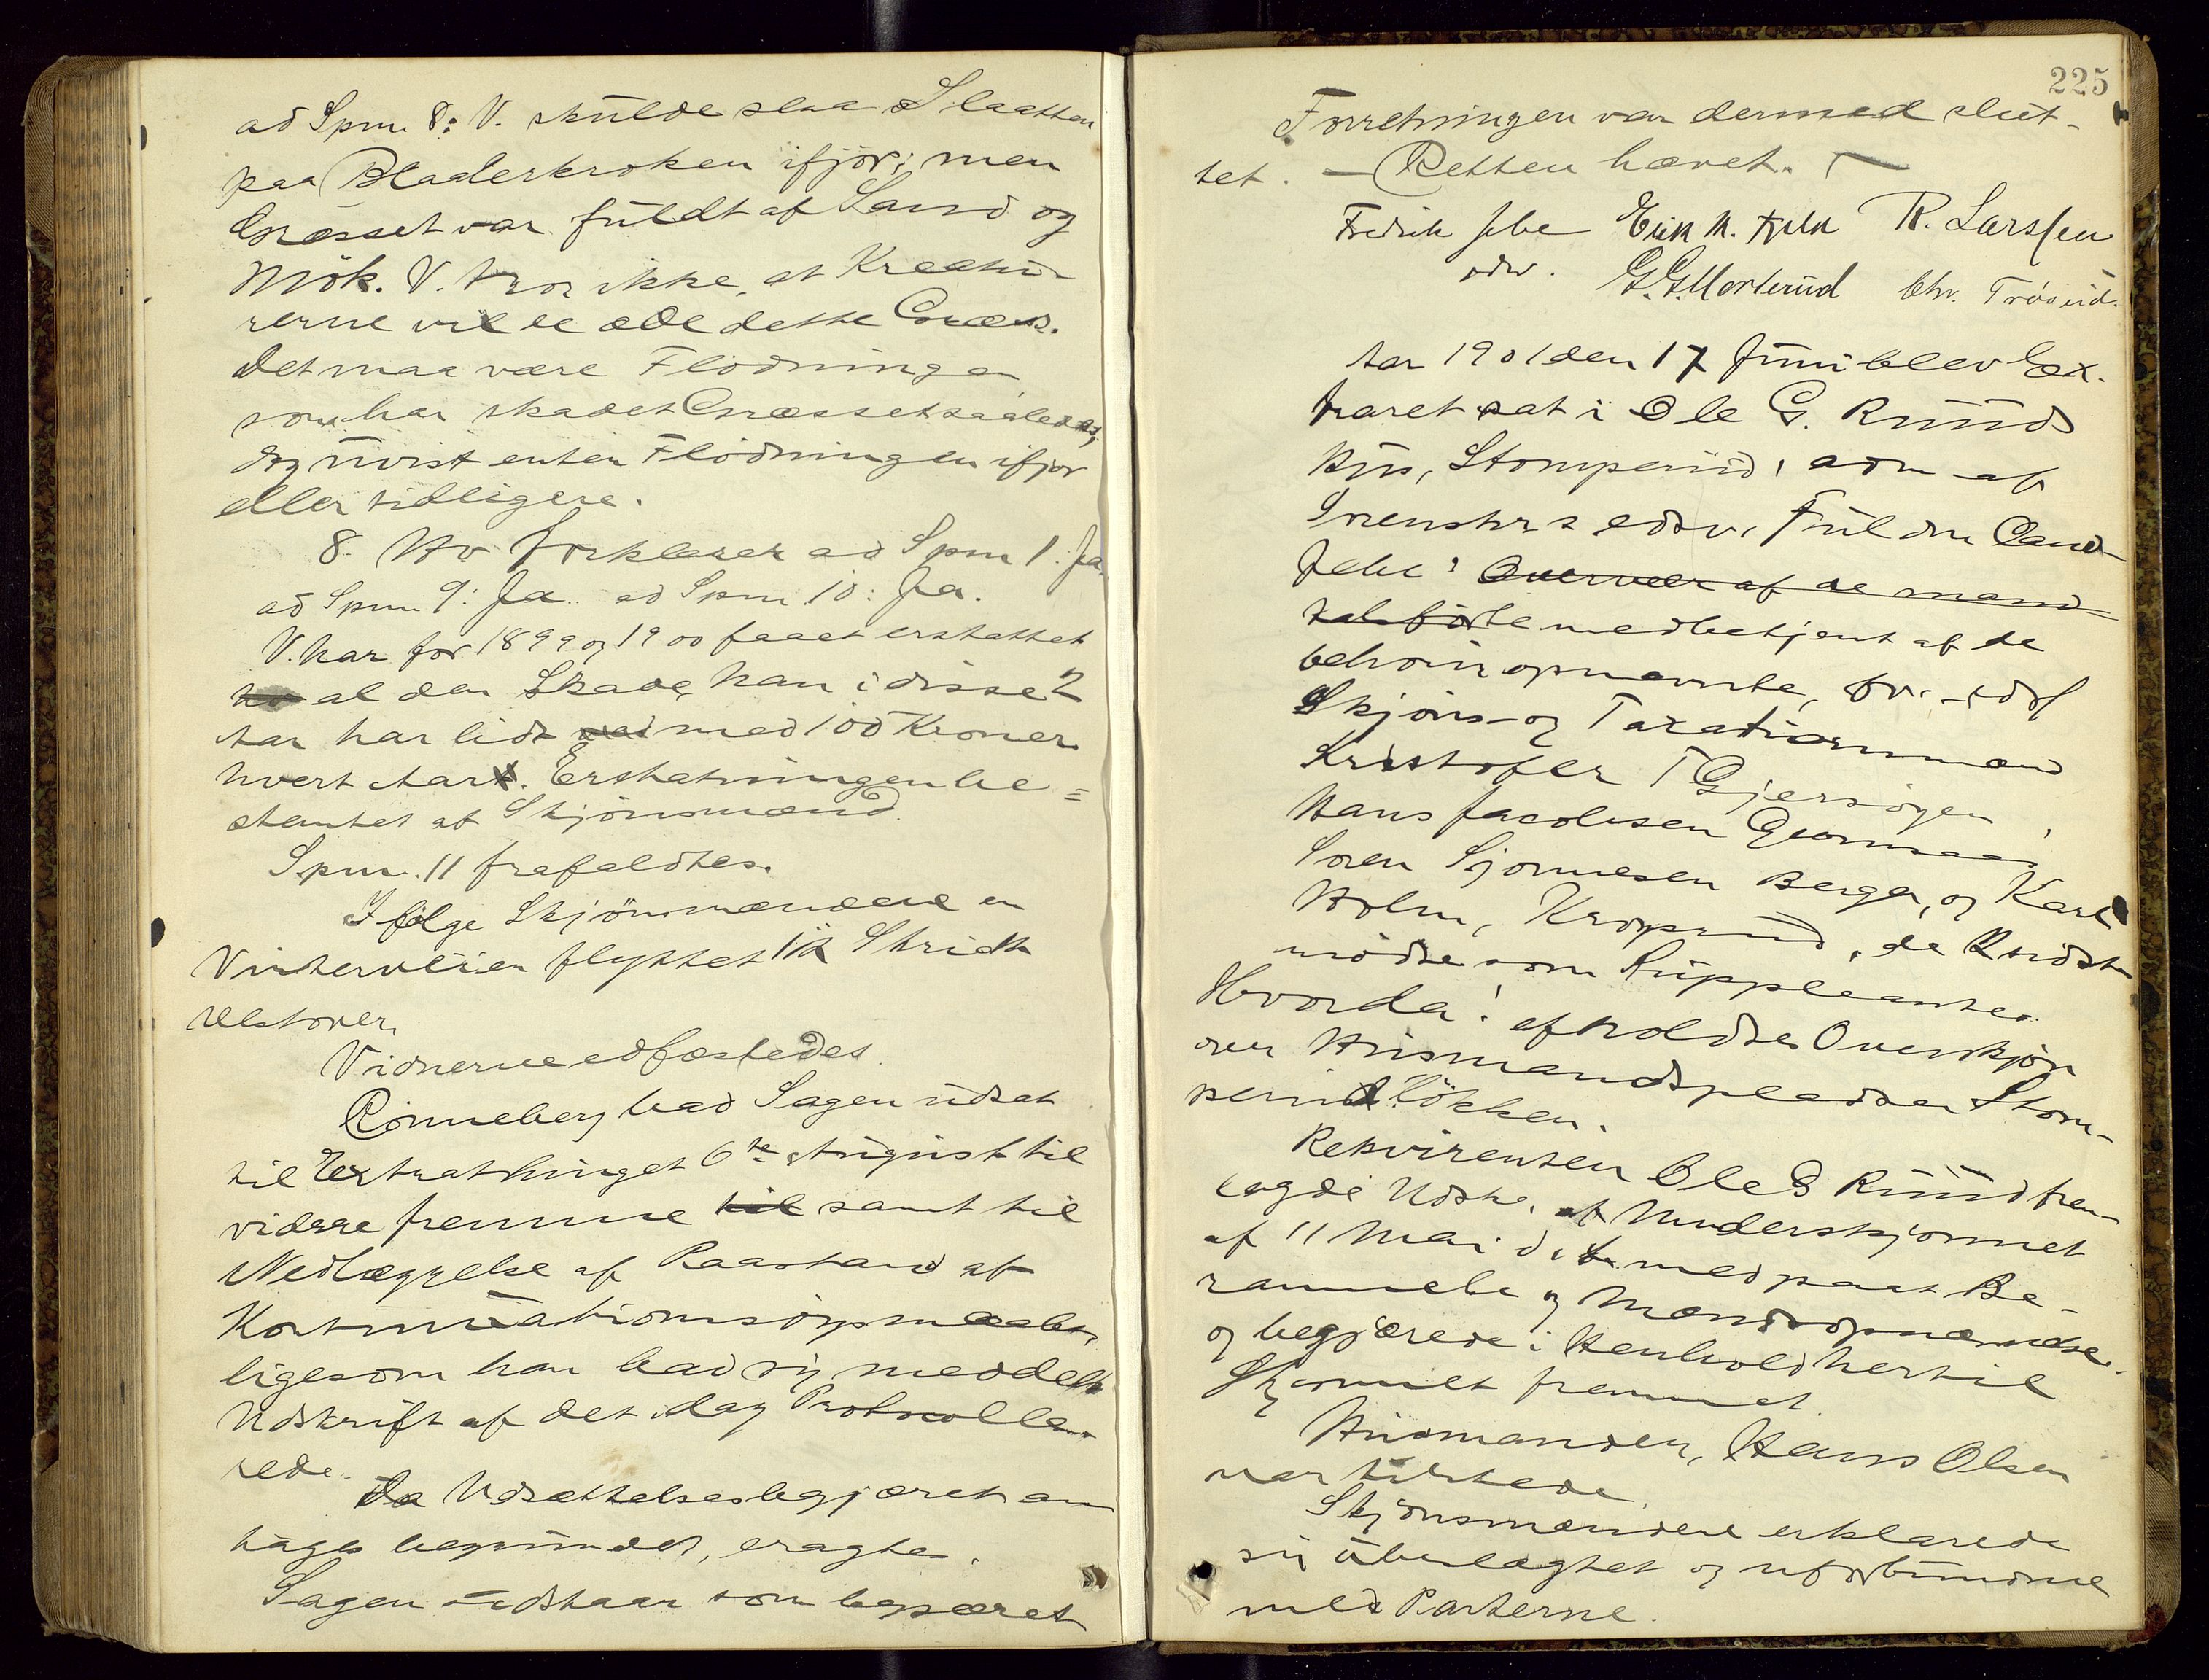 ad Spm. 8: V. skulde slaa Slaatten
paa Bladerkroken ifjor; men
Græsset var fuldt af Sand og
Møk. V. tror ikke, at Kreatu-
rerne vilde æde dette Græs.
Det maa være Flødningen
som har skadet Græsset saaledes,
dog uvist enten Flødningen ifjor
eller tidligere.
8. Av forklarer ad Spm 1. Ja.
ad Spm. 9: Ja. ad Spm. 10: Ja.
V. har for 1899 og 1900 faaet erstattet
al den Skade, han i disse 2
Aar har lidt med 100 Kroner
hvert Aar. Erstatningen be=
stemtes af Skjønsmænd.
Spm. 11 frafaldtes.
Ifølge Skjønsmændene er
Vinterveien flyttet
Vestover.
Vidnerne edfæstedes.
Rønneberg bad Sagen udsat
til Extrathinget 6te August til
videre fremme til samt til
Nedlæggelse af Paastand af
Kontinuationsspørgsmaalet,
ligesom han bad sig meddelt
Udskrift af det idag Protokolle-
rede.
Da Udsættelsesbegjæret an-
tages begrundet, eragtes.
Sagen udstaar som begjæret
225
Forretningen var dermed slut-
tet. — Retten hævet. —
Fredrik Jebe Erik M. R. Larssen
edsv. G. G. Morterud Chr. Trøsud.
Aar 1901 den 17 Juni blev Ex.
traret sat i Ole G. Ruuds
Hus, Stomperud, adm af
Sorenskr s edsv. Fuldm Cand
Jebe: Overvær af de mand
talsførte medbetjent af de
dertil opnævnte, fv. edsf
Skjøns- og Taxationsmænd
Kristofer T Gjersøyen,
Hans Jacobsen Grønaas,
Soren Sjonnesen Berger, og Karl
Holm, Kroprud, de 2 sidste
mødte som Suppleanter.
Hvorda: afholdtes Overskjøn
over Husmandspladsen Stom-
perudløkken.
Rekvirenten Ole G Ruud frem-
lagde Udskr. af Underskjønnet
af 11 Mai d. A. med paat Be-
rammelse og Mandsopnævnelse.
og begjærede i Henhold hertil
Skjønnet fremmet.
Husmanden, Hans Olsen
var tilstede.
Skjønsmændene erklærede
sig ubeslægtet og uforbundne
med Parterne.